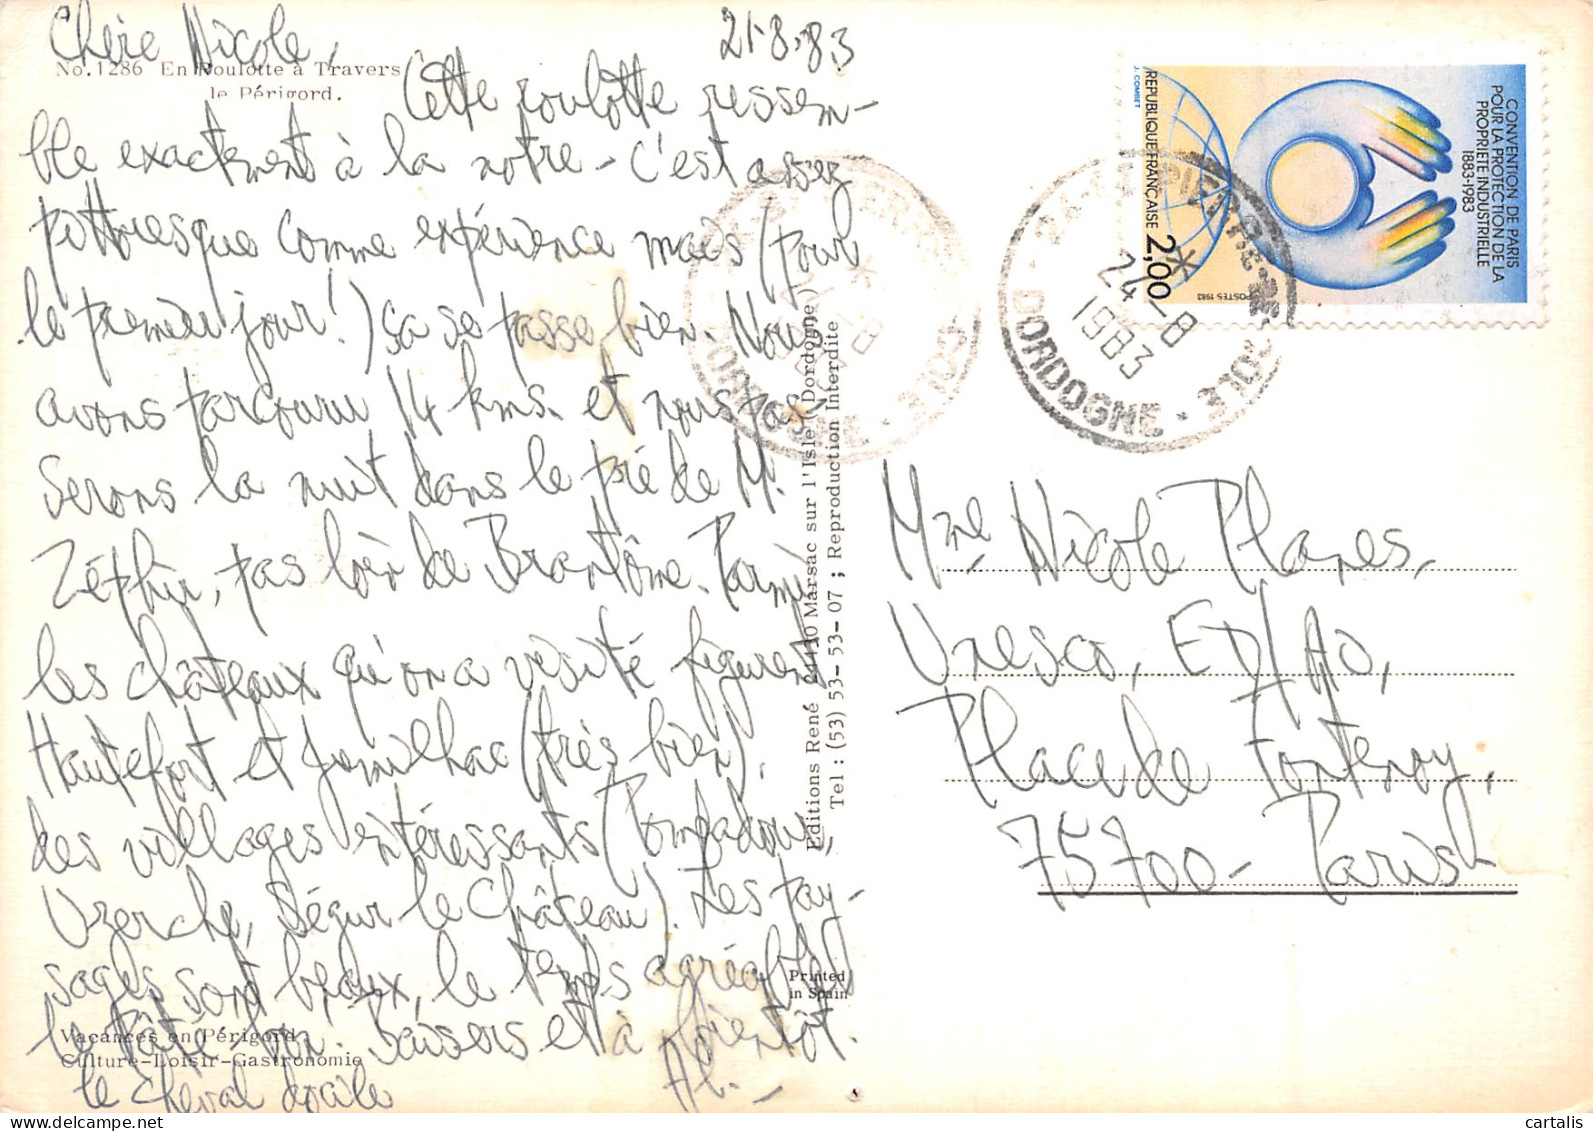 Chère Nicole,
21-8-83
No. 1286 En Roulotte à Travers
le Périgord.
Cette roulotte ressem-
ble exactement à la notre - c'est assez
pittoresque comme expérience mais (pour
le premier jour!) ça se passe bien. Nous
avons parcouru 14 kms. et nous pas-
serons la nuit dans le pré de M.
Zéphir, pas loin de Brantôme. Parmi
les châteaux qu'on a visité figurent
Hautefort et Jumilhac (très bien),
des villages intéressants (Pompadour,
Uzerche, Ségur le Château). Les pay-
sages sont beaux, le temps agréable,
le pâté bon. Baisers et à bientôt.
le cheval docile
Al.-
Vacances en Périgord
Culture-Loisir-Gastronomie
Editions René 24430 Marsac sur l'Isle (Dordogne)
Tel : (53) 53-53-07 ; Reproduction Interdite
Printed
in Spain
CONVENTION DE PARIS
POUR LA PROTECTION DE LA
PROPRIETE INDUSTRIELLE
1883-1983
POSTES 1983
2,00
REPUBLIQUE FRANÇAISE
J. COMBET
24 PIERRE DE COLE
24-8
1983
DORDOGNE
Mme Nicole Planes,
Unesco, ED/AO,
Place de Fontenoy,
75700 - Paris